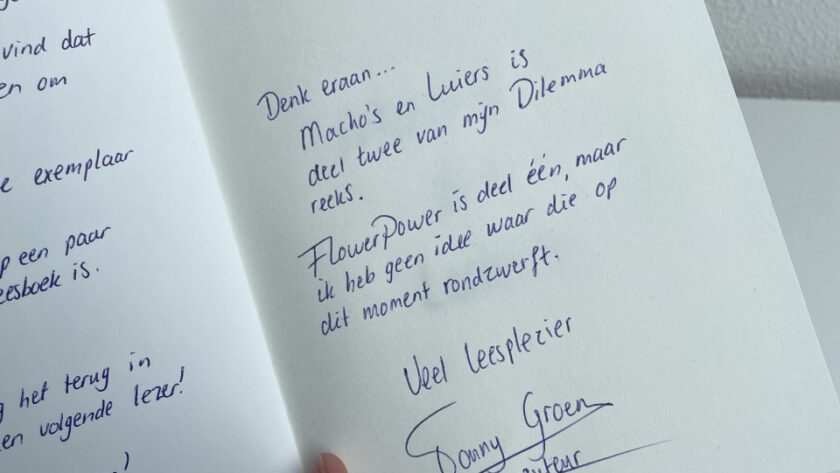 vind dat
en om
e exemplaar
p een paar
eesboek is.
g het terug in
en volgende lezer!
!
Denk eraan...
Macho's en Luiers is
deel twee van mijn Dilemma
reeks.
FlowerPower is deel één, maar
ik heb geen idee waar die op
dit moment rondzwerft.
Veel leesplezier
Groen